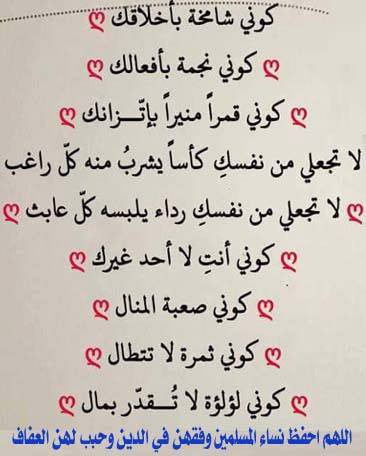 كوني شامخة بأخلاقك ღ
ღ كوني نجمة بأفعالك ღ
ღ كوني قمراً منيراً بإتّـــزانك ღ
لا تجعلي من نفسكِ كأساً يشربُ منه كلّ راغب
ღ لا تجعلي من نفسكِ رداء يلبسه كلّ عابث ღ
ღ كوني أنتِ لا أحد غيرك ღ
ღ كوني صعبة المنال ღ
ღ كوني ثمرة لا تتطال ღ
ღ كوني لؤلؤة لا تُـــقدّر بمال ღ
اللهم احفظ نساء المسلمين وفقهن في الدين وحبب لهن العفاف